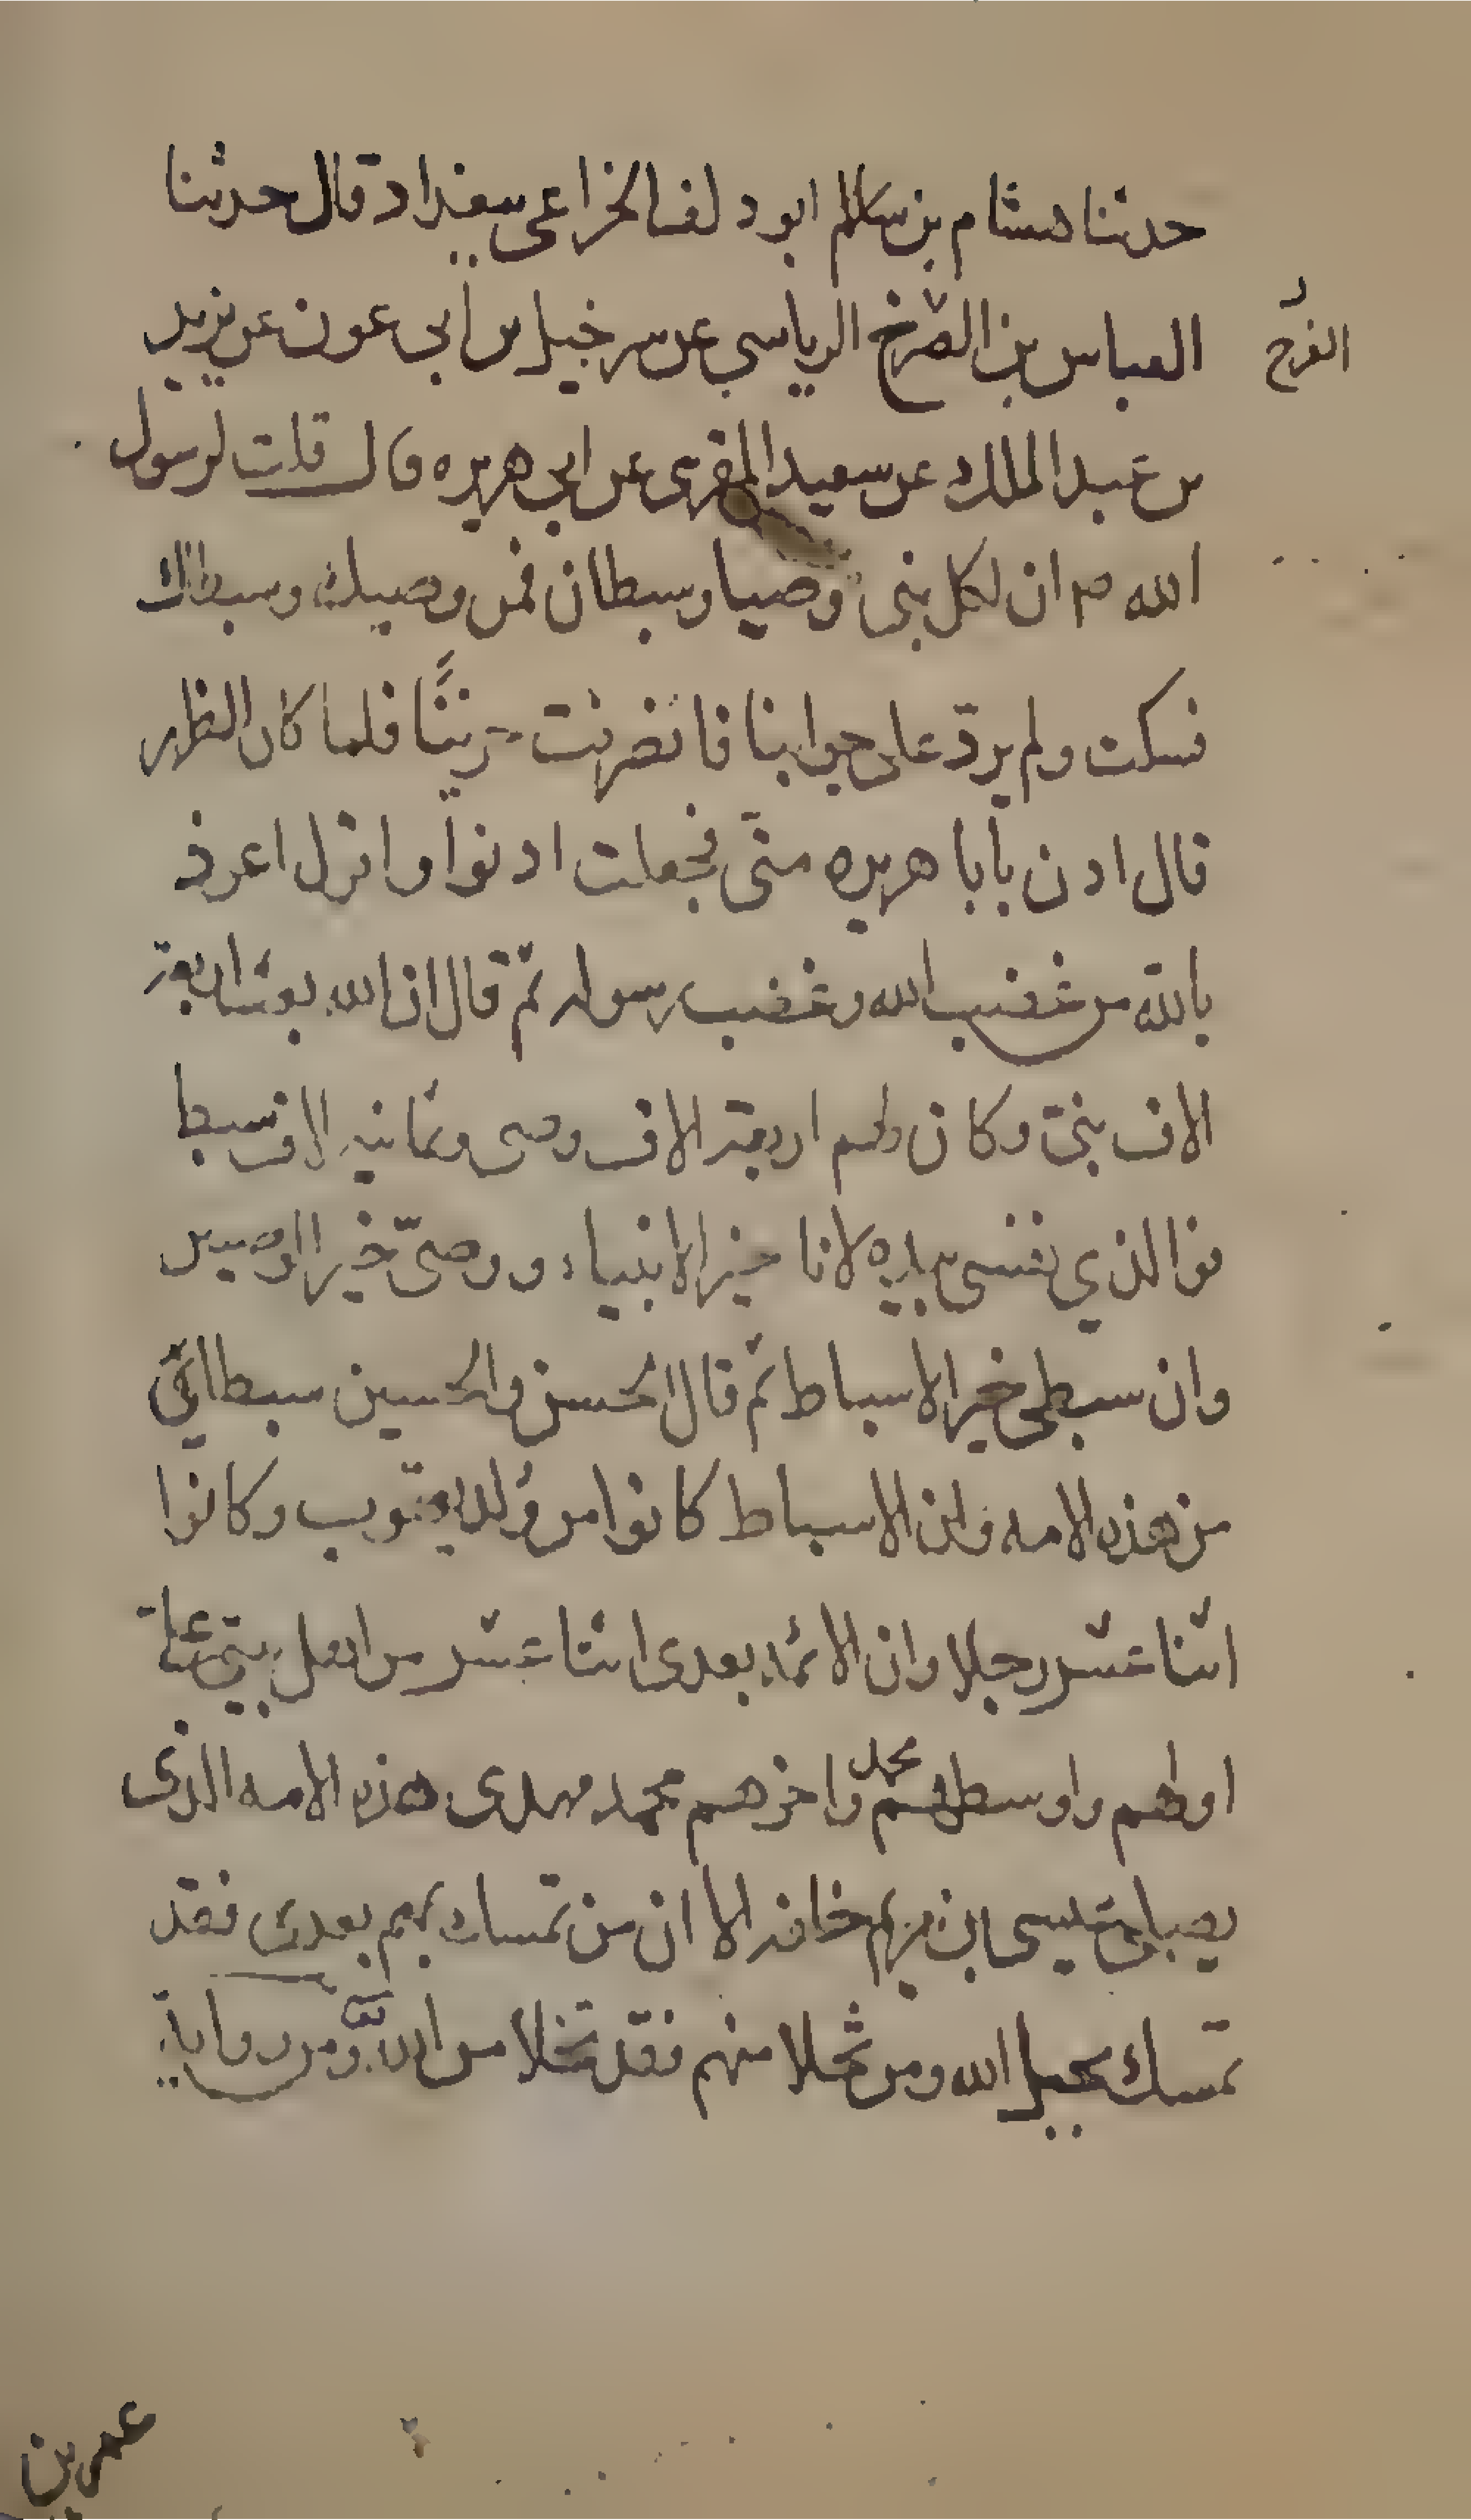 حدثنا هشام بن سالم ابو دلف الخزاعي ببغداد قال حدثنا
العباس بن الفرخ الرياسي عن سرخبيل بن أبي عون عن يزيد
الفرج
بن عبد الملك عن سعيد المقرى عن ابي هريره قال قلت لرسول
الله ص ان لكل نبى وصيا وسبطان فمن وصيك وسبطاك
فسكت ولم يردّ على جوابنا فانصرفت حزينًا فلما كان الظهر
قال ادن يأبا هريره منّى فجعلت ادنوا واقول اعوذ
بالله من غضب الله وغضب رسوله ثم قال ان الله بعث اربعة
الاف نبىّ وكان لهم اربعة الاف وصى وثمانيه الاف سبطا
فوالذي نفسى بيده لانا خير الانبياء ووصىّ خير الوصيين
وان سبطى خير الاسباط ثم قال الحسن والحسين سبطائي
من هذه الامه وان الاسباط كانوا من وُلد يعقوب وكانوا
اثنا عشر رجلا وان الائمه بعدى اثنا عشر من اهل بيتى علىّ
اولهم واوسطهم محمد واخرهم محمد مهدى هذه الامه الذى
يصلى عيسى ابن مريم خلفه الا ان من تمسك بهم بعدى فقد
تمسك بحبل الله ومن تخلا منهم فقد تخلا من الله ومن رواية
عمر بن